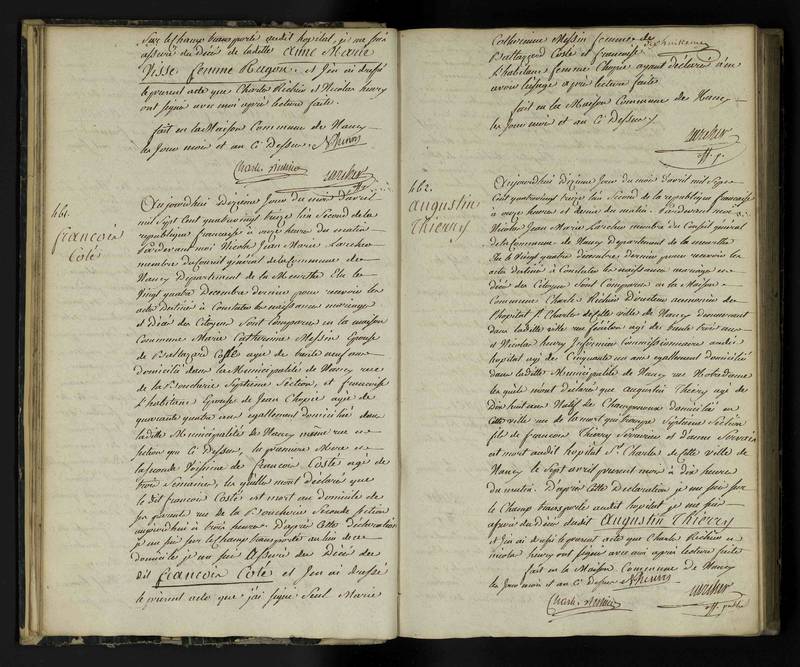 sur le champ transporté audit hopital, je me suis
assuré du Décès de ladite Anne Marie
femme Hugon, et j'en ai dressé
le présent acte que Charles Richier et Nicolas henry
ont signé avec moi après lecture faite.
fait en la Maison Commune de Nancy
les Jour mois et an Ci Dessus, NHenry
461.
francois
Coté
Aujourdhui Dixieme Jour du mois d'avril
mil Sept Cent quatrevingt treize l'an Second de la
republique francaise à onze heure du matin
Pardevant moi Nicolas Jean Marie Larcher
membre du Conseil général de la Commune de
Nancy Departement de la Meurthe Elu le
Vingt quatre Decembre dernier pour recevoir les
actes Destinés à Constater les naissances mariages
et Décès des Citoyens Sont Comparus en la maison
Commune Marie Catherinne Messin Epouse
de Baltazard Costé agée de trente neuf ans
domicilié dans la Municipalité de Nancy rue
de la Boucherie Septieme Section, et francoise
Lhabitant Epouse de Jean Chopie agée de
quarante quatre ans egallement domicilié dans
ladite Municipalité de Nancy même rue et
section que Ci Dessus, la premiere Mere et
la seconde Voisinne de francois Costé agé de
trois Semaines, les quelles m'ont déclaré que
le dit francois Costé est mort au domicile de
ses parents rue de la Boucherie Seconde Section
aujourdhui à trois heures. D'après cette déclaration
je me suis sur le champ transporté au lieu de ce
domicile je me suis Assuré du Décès du
dit francois Coté et J'en ai dressé
le présent acte que j'ai signé Seul Marie
Catherinne Messin femme de
Baltazard Costé et francoise
Lhabitant femme Chopie ayant déclaré n'en
avoir l'usage après lecture faite
fait en la Maison Commune de Nancy
les Jour mois et an Ci Dessus
Larcher
462.
augustin
Thierry
Aujourdhui Dixieme Jour du mois d'avril mil Sept
Cent quatrevingt treize l'an Second de la republique francaise
à onze heures et demie du matin. Pardevant moi
Nicolas Jean Marie Larcher membre du Conseil général
de la Commune de Nancy Departement de la meurthe
Elu le Vingt quatre decembre dernier pour recevoir les
actes destinés à Constater les naissances mariages et
décès des Citoyens Sont Comparus en la Maison
Commune Charles Richier Directeur
l'hopital St. Charles de cette ville de Nancy demeurant
dans ladite ville rue agé de trente trois ans
et Nicolas henry Infirmier Commissionnaire audit
hopital agé de Cinquante un ans egallement domicilié
dans ladite Municipalité de Nancy rue
les quels m'ont déclaré que augustin Thiery agé de
Dix huit ans Natif de domicilié en
Cette ville rue de la Septieme Section
fils de francois Thierry et d'anne Servais
est mort audit hopital St. Charles de Cette ville de
Nancy le Sept avril présent mois à dix heures
du matin. D'après Cette Déclaration je me suis sur
le Champ transporté audit hopital je me suis
assuré du Décès dudit Augustin Thierry
et j'en ai dressé le présent acte que Charles Richier et
nicolas henry ont signé avec moi après lecture faite
fait en la Maison Commune de Nancy
les Jour mois et an ci Dessus NHenry
Larcher